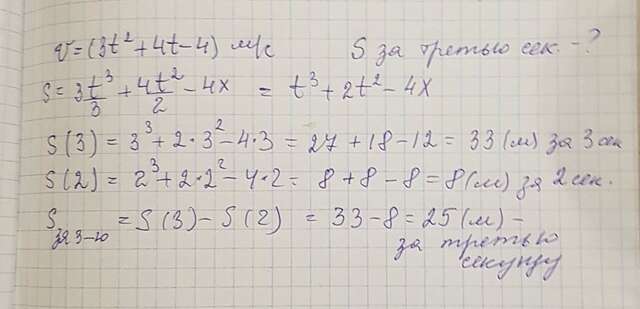 v=(3t²+4t-4) м/с S за третью сек. -?
S= 3t³/3 + 4t²/2 - 4x = t³+2t²-4x
S(3) = 3³+2·3²-4·3 = 27+18-12 = 33(м) за 3 сек
S(2) = 2³+2·2²-4·2= 8+8-8=8(м) за 2 сек.
S за 3-ю = S(3)-S(2) = 33-8=25(м) -
за третью
секунду